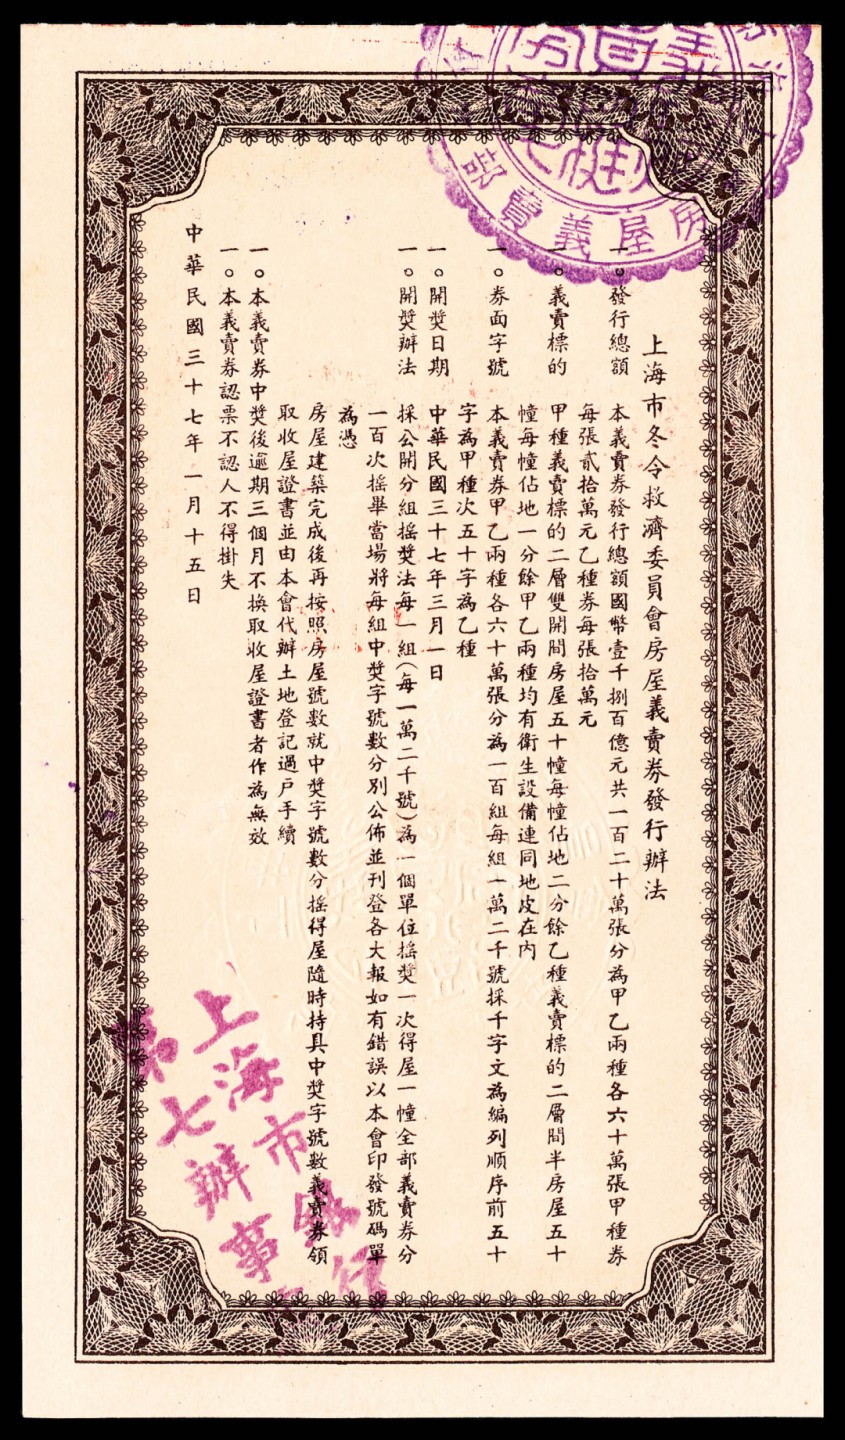 上海市冬令救濟委員會房屋義賣券發行辦法
一。發行總額　本義賣券發行總額國幣壹千捌百億元共一百二十萬張分為甲乙兩種各六十萬張甲種券
每張貳拾萬元乙種券每張拾萬元
一。義賣標的　甲種義賣標的二層雙開間房屋五十幢每幢佔地二分餘乙種義賣標的二層間半房屋五十
幢每幢佔地一分餘甲乙兩種均有衛生設備連同地皮在內
一。券面字號　本義賣券甲乙兩種各六十萬張分為一百組每組一萬二千號採千字文為編列順序前五十
字為甲種次五十字為乙種
一。開獎日期　中華民國三十七年三月一日
一。開獎辦法　採公開分組搖獎法每一組(每一萬二千號)為一個單位搖獎一次得屋一幢全部義賣券分
一百次搖畢當場將每組中獎字號數分別公佈並刊登各大報如有錯誤以本會印發號碼單
為憑
房屋建築完成後再按照房屋號數就中獎字號數分搖得屋隨時持具中獎字號數義賣券領
取收屋證書並由本會代辦土地登記過戶手續
一。本義賣券中獎後逾期三個月不換取收屋證書者作為無效
一。本義賣券認票不認人不得掛失
中華民國三十七年一月十五日
房屋義賣
上海市銀行
第七辦事